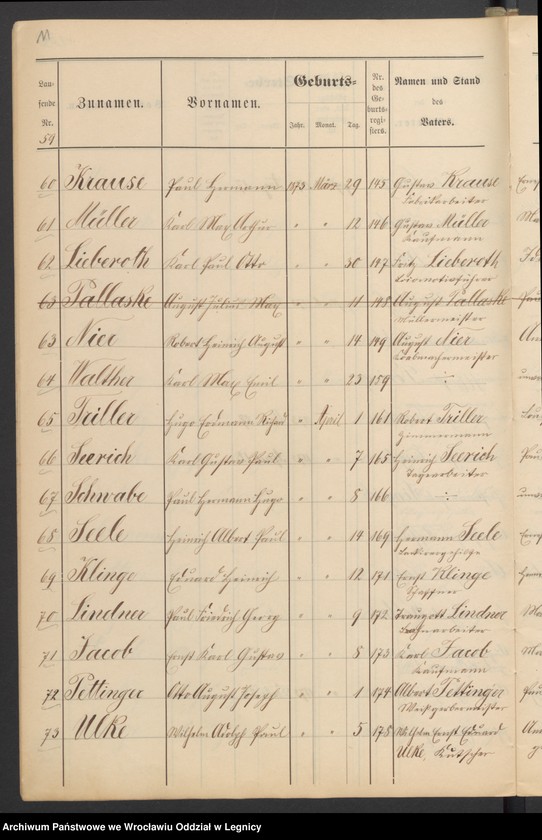 M
Lau-
fende
Nr.
59
Zunamen.
Vornamen.
Geburts-
Jahr. Monat. Tag.
Nr.
des
Ge-
burts-
regi-
sters.
Namen und Stand
des
Vaters.
60 Krause Paul Hermann 1873 März 29 145 Gustav Krause
Fabrikarbeiter
61 Müller Karl Max Arthur " " 12 146 Gustav Müller
Kaufmann
62 Lieberoth Karl Paul Otto " " 30 147 Fritz Lieberoth
Locomotivführer
63 Pallaske August Julius Max " " 11 148 August Pallaske
Müllermeister
63 Nier Robert Heinrich August " " 14 149 August Nier
64 Walther Karl Max Emil " " 23 159 -:-
65 Triller Hugo Erdmann Richard " April 1 161 Robert Triller
Zimmermann
66 Seerich Karl Gustav Paul " " 7 165 Heinrich Seerich
Tagearbeiter
67 Schwabe Paul Hermann Hugo " " 8 166 -:-
68 Seele Heinrich Albert Paul " " 14 169 Hermann Seele
69 Klinge Eduard Heinrich " " 12 171 Ernst Klinge
Schaffner
70 Lindner Paul Friedrich Georg " " 9 172 Traugott Lindner
71 Jacob Ernst Karl Gustav " " 8 173 Karl Jacob
Kaufmann
72 Pettinger Otto August Joseph " " 1 174 Albert Pettinger
Weißgerbermeister
73 Ulke Wilhelm Adolph Paul " " 5 178 Wilhelm Ernst Eduard
Ulke, Kutscher
Archiwum Państwowe we Wrocławiu Oddział w Legnicy